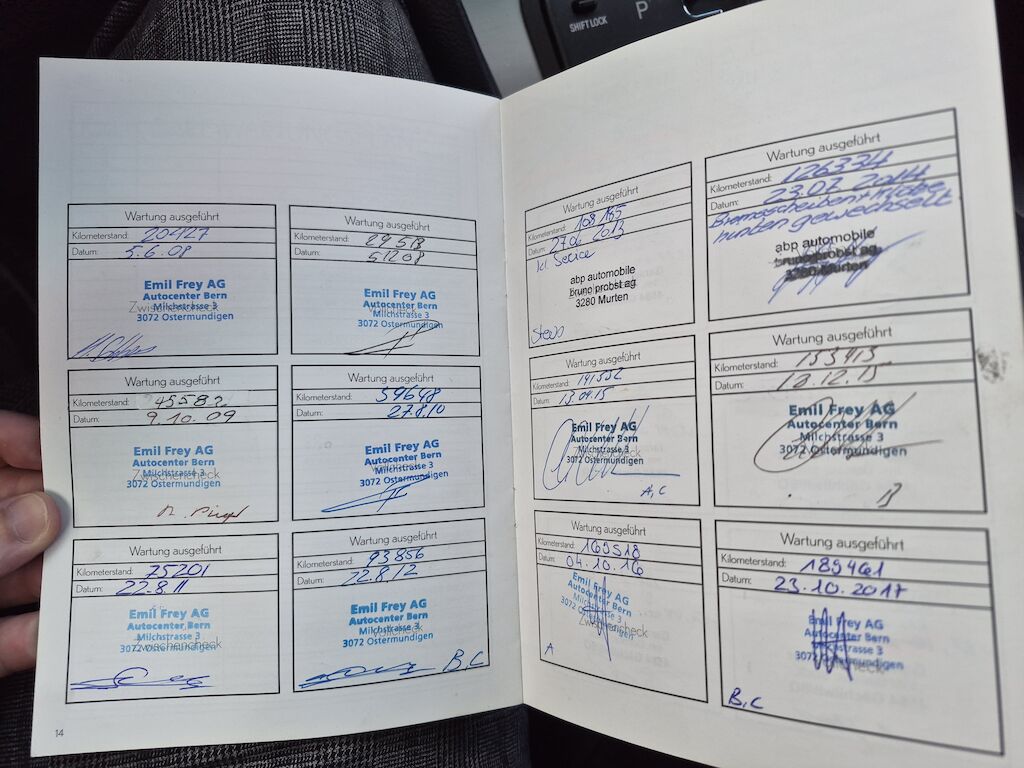 SHIFT LOCK
P
Wartung ausgeführt
Kilometerstand: 20427
Datum: 5.6.08
Emil Frey AG
Autocenter Bern
Zwischencheck
Milchstrasse 3
3072 Ostermundigen
Wartung ausgeführt
Kilometerstand: 29518
Datum: 5 12 08
Emil Frey AG
Autocenter Bern
Milchstrasse 3
3072 Ostermundigen
Wartung ausgeführt
Kilometerstand: 45582
Datum: 9.10.09
Emil Frey AG
Autocenter Bern
Milchstrasse 3
Zwischencheck
3072 Ostermundigen
Wartung ausgeführt
Kilometerstand: 59648
Datum: 27.8.10
Emil Frey AG
Autocenter Bern
Milchstrasse 3
3072 Ostermundigen
Wartung ausgeführt
Kilometerstand: 75201
Datum: 22.8.11
Emil Frey AG
Autocenter Bern
Milchstrasse 3
Zwischencheck
3072 Ostermundigen
Wartung ausgeführt
Kilometerstand: 93856
Datum: 22.8.12
Emil Frey AG
Autocenter Bern
Milchstrasse 3
3072 Ostermundigen
B,C
14
Wartung ausgeführt
Kilometerstand: 108185
Datum: 27.06 2013
kl. Service
abp automobile
bruno probst ag
3280 Murten
Wartung ausgeführt
Kilometerstand: 126334
Datum: 23.07 2014
Bremsscheiben + Klötze
hinten gewechselt
abp automobile
bruno probst ag
3280 Murten
Wartung ausgeführt
Kilometerstand: 141552
Datum: 13.04.15
Emil Frey AG
Autocenter Bern
Milchstrasse 3
Zwischencheck
3072 Ostermundigen
A,C
Wartung ausgeführt
Kilometerstand: 153415
Datum:
Emil Frey AG
Autocenter Bern
Milchstrasse 3
3072 Ostermundigen
B
Wartung ausgeführt
Kilometerstand: 169518
Datum: 04.10.16
Emil Frey AG
Autocenter Bern
Milchstrasse 3
3072 Ostermundigen
Zwischencheck
A
Wartung ausgeführt
Kilometerstand: 189461
Datum: 23.10.2017
Emil Frey AG
Autocenter Bern
Milchstrasse 3
3072 Ostermundigen
B,C